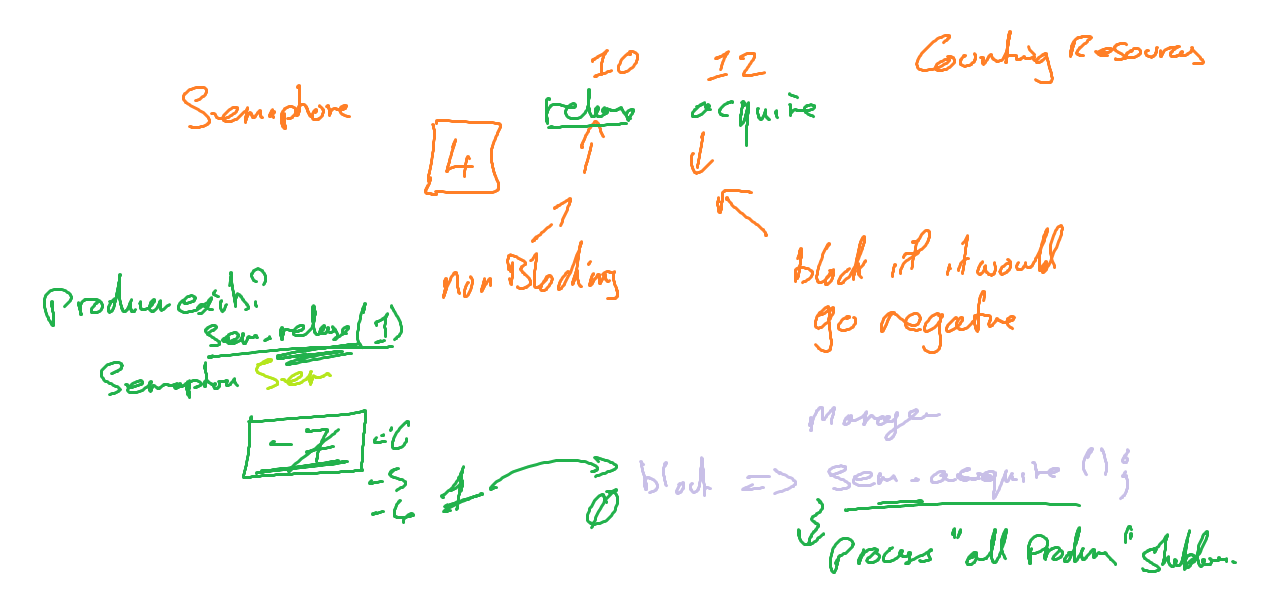 Counting Resources
10 12
Semaphore release acquire
4
non Blocking
block if it would
go negative
Producer exits?
sem.release(1)
Semaphore Sem
Manager
-7
-5
-4
1
0
block => sem.acquire();
Process "all Producer" Shutdown.